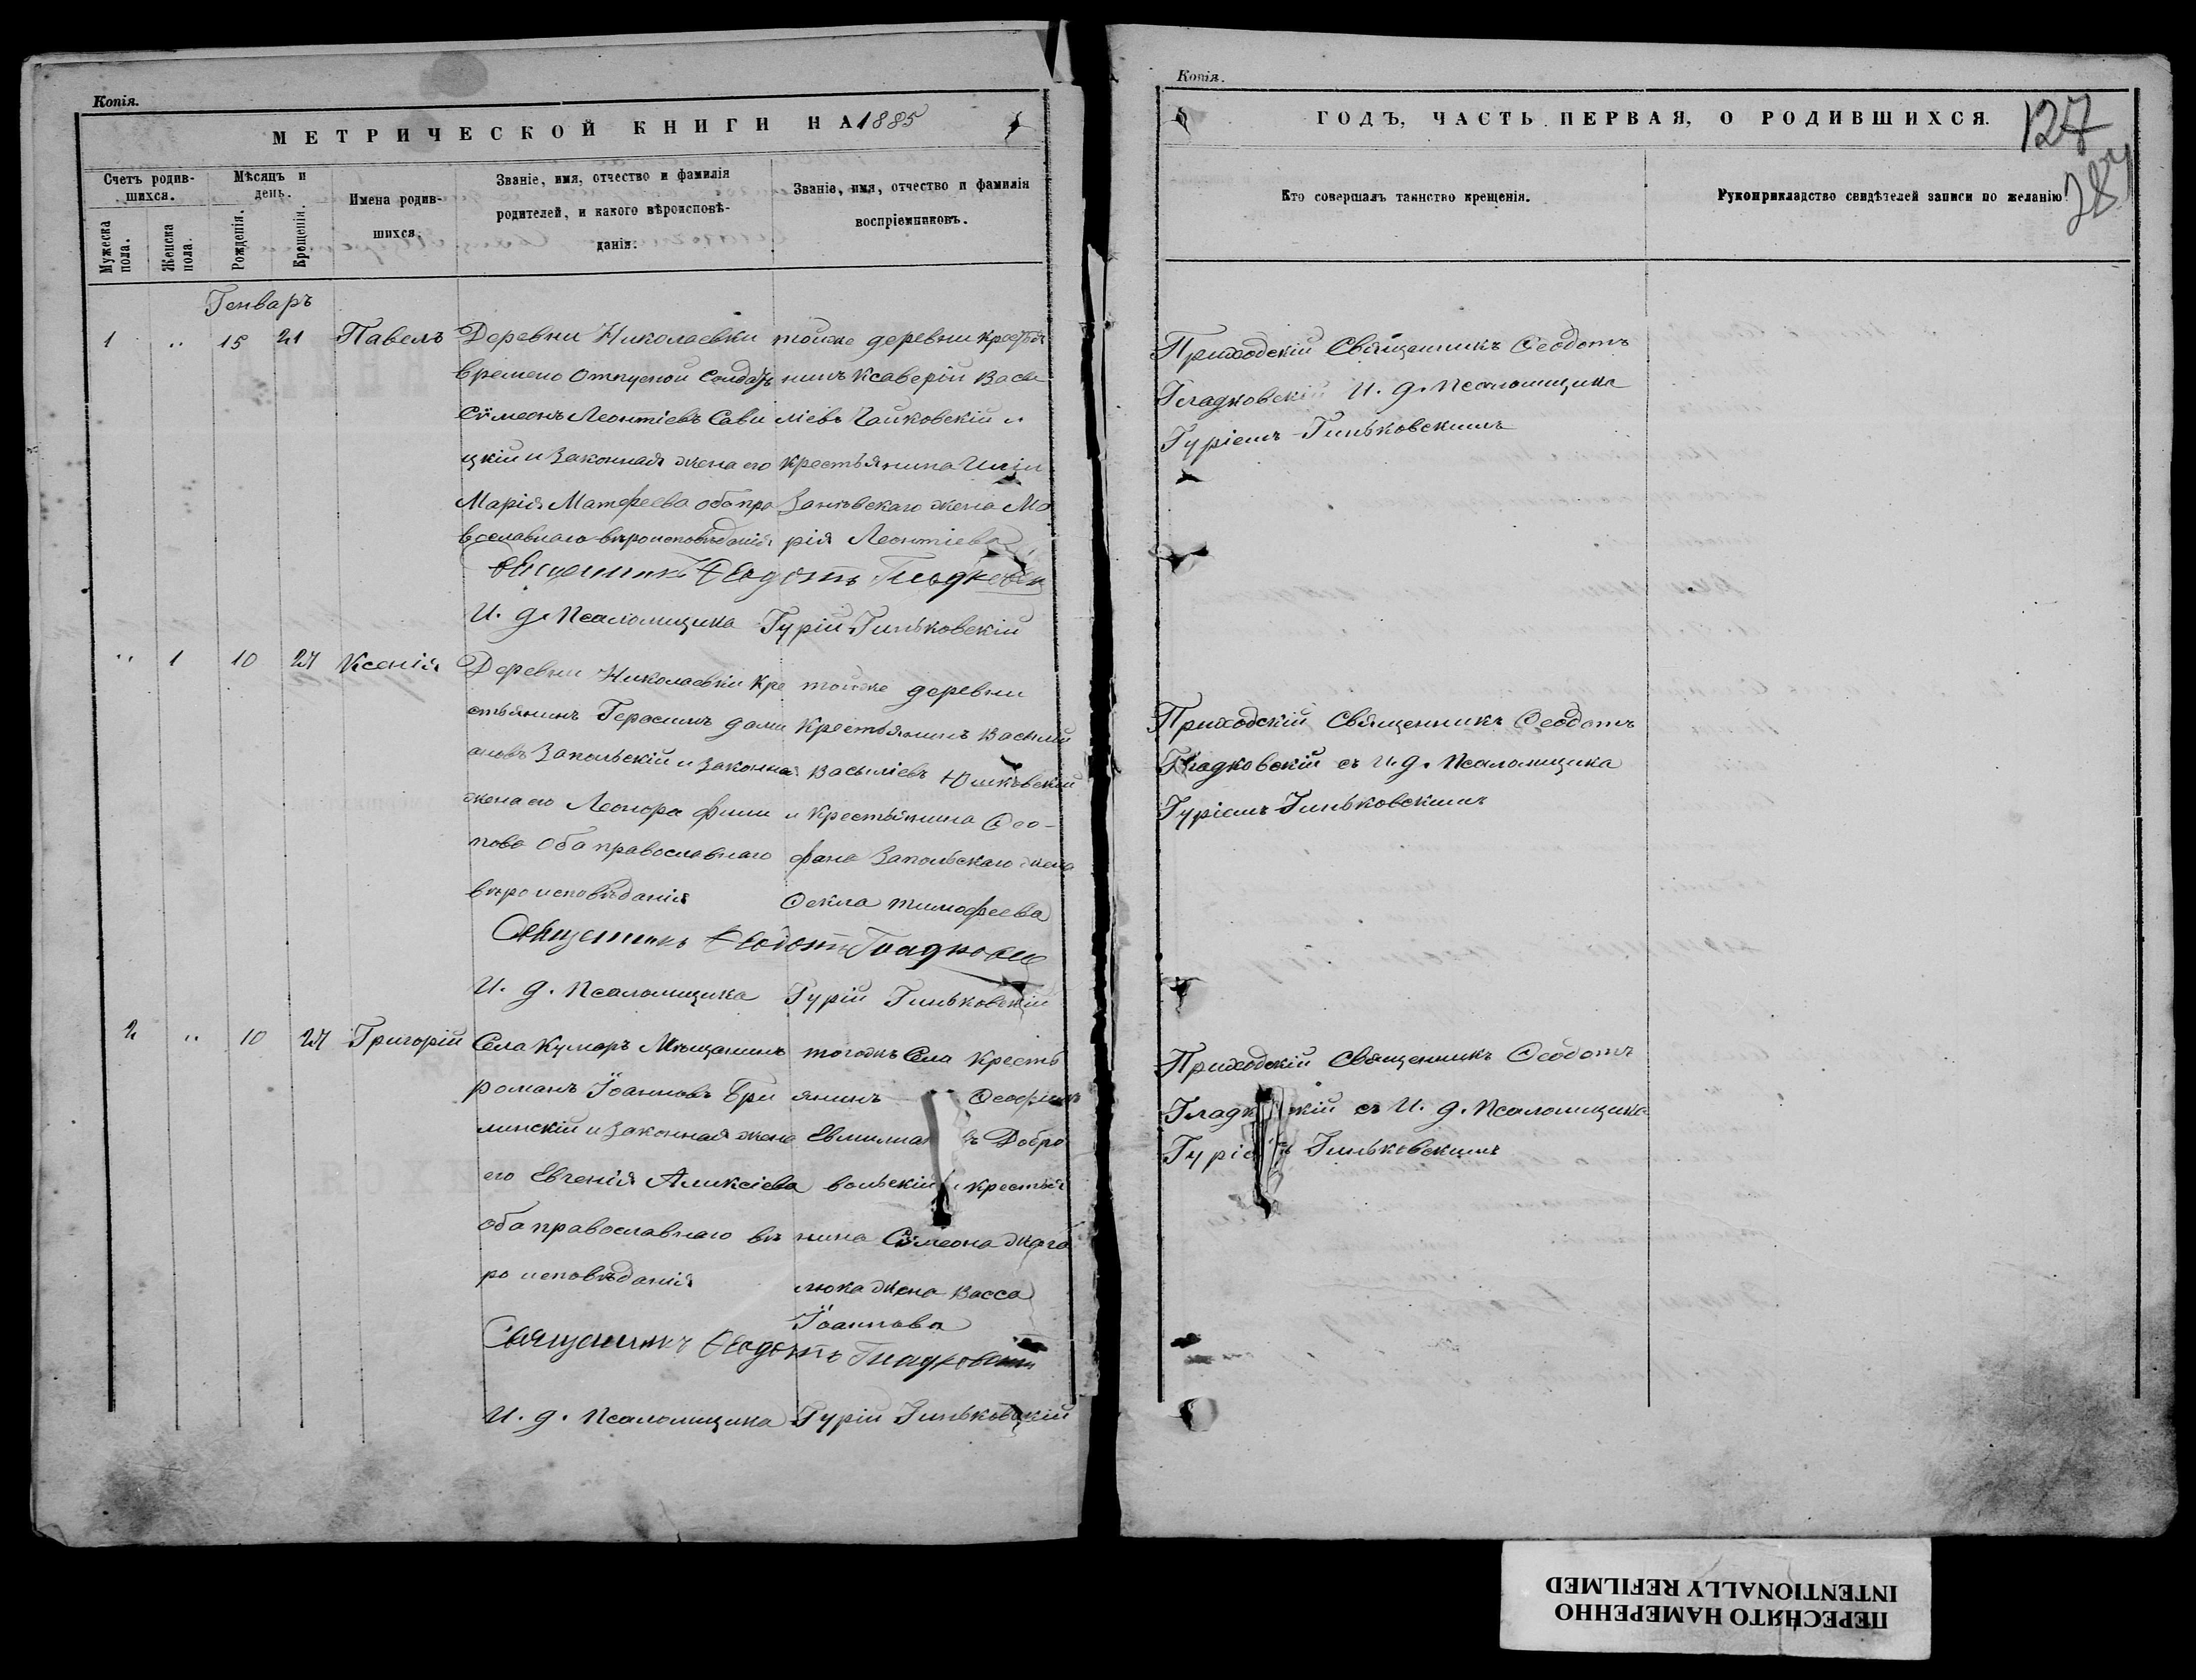 Копія.
МЕТРИЧЕСКОЙ КНИГИ НА 1885
Счетъ родив-
шихся.
Мѣсяцъ и
день.
Имена родив-
шихся.
Званіе, имя, отчество и фамилія
родителей, и какого вѣроисповѣ-
данія.
Званіе, имя, отчество и фамилія
воспріемниковъ.
Мужеска
пола.
Женска
пола.
Рожденія.
Крещенія.
Генваръ
1 " 15 21 Павелъ
Деревни Николаевки
времено отпуской Солдатъ
Сѵмеонъ Леонтіевъ Сави
цкій и Законная жена его
Марія Матфеева оба пра
вославнаго вѣроисповѣданія
тойже деревни кресть
нинъ Ксаверій Васи
ліевъ Чайковскій и
крестьянина
жена Ма
рія Леонтіева
Священникъ Ѳеодотъ Гладковскій
И. д. Псаломщика Гурій Гиньковскій
" 1 10 27 Ксенія
Деревни Николаевки Кре
стьянинъ Герасимъ дами
ановъ Запольскій и законная
жена его Леонора Фили
пова Оба православнаго
вѣроисповѣданія
тойже деревни
Крестьянинъ Василій
Василіевъ Юшковскій
и Крестьянина Ѳео-
фана Запольскаго жена
Ѳекла тимофеева
Священникъ Ѳеодотъ Гладковскій
И. д. Псаломщика Гурій Гиньковскій
2 " 10 27 Григорій
Села Кумаръ Мѣщанинъ
романъ Іоанновъ
линскій и Законная жена
его Евгенія Аликсіева
оба православнаго вѣ
роисповѣданія
тогожъ Села Кресть
янинъ
Добро
вольскій и крестья
нина Сѵмеона
люка жена Васса
Іоаннова
Священникъ Ѳеодотъ Гладковскій
И. д. Псаломщика Гурій Гиньковскій
Копія.
ГОДЪ, ЧАСТЬ ПЕРВАЯ, О РОДИВШИХСЯ.
127
Кто совершалъ таинство крещенія.
Рукоприкладство свидѣтелей записи по желанію
Приходскій Священникъ Ѳеодотъ
Гладковскій И. д. Псаломщика
Гуріемъ Гиньковскимъ
Приходскій Священникъ Ѳеодотъ
Гладковскій съ И. д. Псаломщика
Гуріемъ Гиньковскимъ
Приходскій Священникъ Ѳеодотъ
кій съ И. д. Псаломщика
Гиньковскимъ
ПЕРЕСНЯТО НАМЕРЕННО
INTENTIONALLY REFILMED